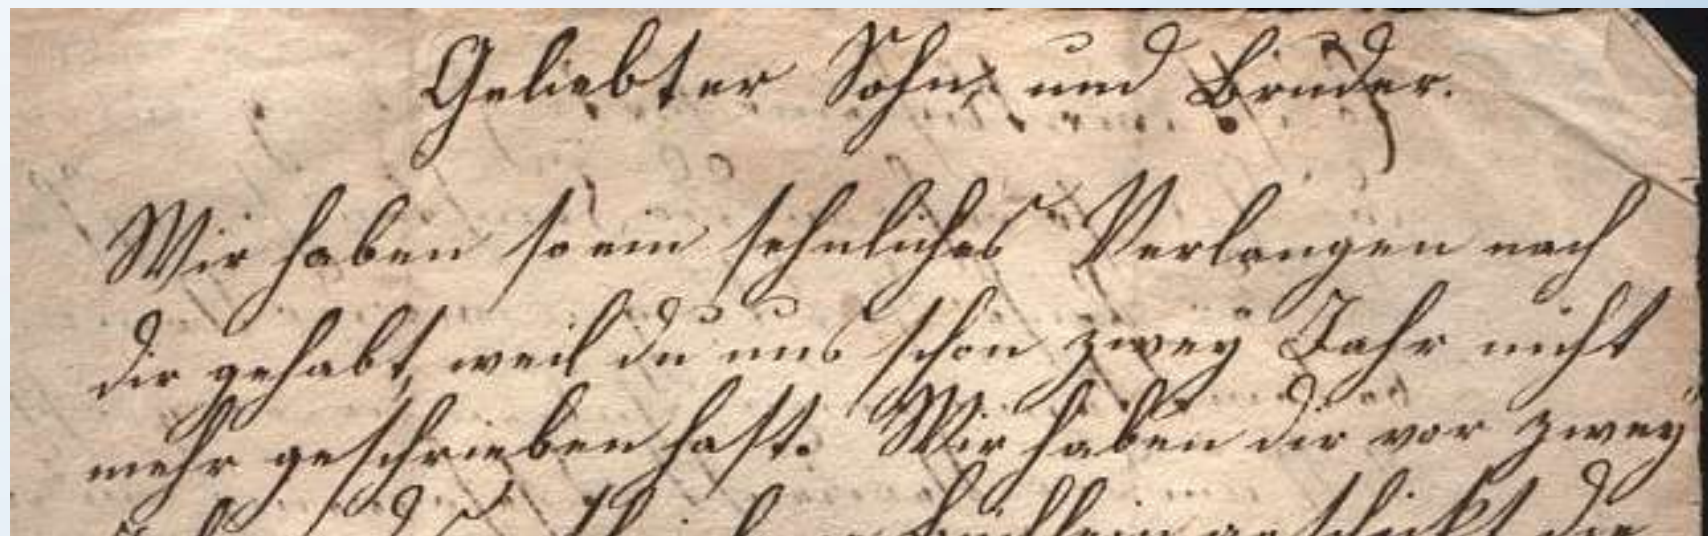 Geliebter Sohn, und Bruder.
Wir haben so ein sehnliches Verlangen nach
dir gehabt, weil du uns schon zweÿ Jahr nicht
mehr geschrieben hast. Wir haben dir vor zweÿ
geschickt die